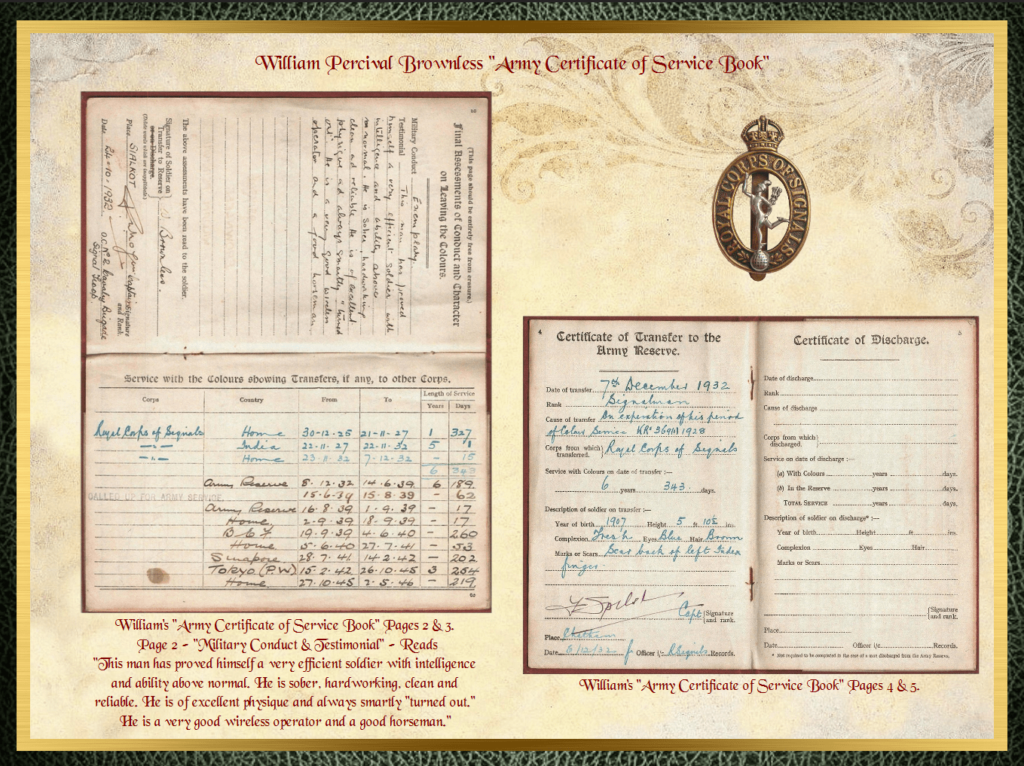 William Percival Brownless "Army Certificate of Service Book"
(This page should be entirely free from erasure.)
Final Assessments of Conduct and Character
on Leaving the Colours.
Military Conduct Exemplary.
Testimonial This man has proved
himself a very efficient soldier with
intelligence and ability above
normal. He is sober, hardworking,
clean and reliable. He is of excellent
physique and always smartly "turned
out". He is a very good wireless
operator and a good horseman.
The above comments have been read to the soldier.
Signature of Soldier on
Transfer to Reserve
or on Discharge.
Brownless.
Place SIALKOT
Captain Signature
and Rank.
Date 24-10-1932 O.C. No 2 Cavalry Brigade
Signal Troop
Service with the Colours showing Transfers, if any, to other Corps.
Corps Country From To Length of Service
Years Days
Royal Corps of Signals Home 30-12-25 21-11-27 1 327
-"- India 22-11-27 22-11-32 5 1
-"- Home 23-11-32 7-12-32 - 15
6 343
Army Reserve 8.12.32 14.6.39 6 189
CALLED UP FOR ARMY SERVICE. 15.6.39 15.8.39 - 62
Army Reserve 16.8.39 1.9.39 - 17
Home 2.9.39 18.9.39 - 17
B.E.F 19.9.39 4.6.40 - 260
Home 5.6.40 27.7.41 - 53
Singapore 28.7.41 14.2.42 - 202
TOKYO (P.W) 15.2.42 26.10.45 3 254
Home 27.10.45 2.5.46 - 219
William's "Army Certificate of Service Book" Pages 2 & 3.
Page 2 - "Military Conduct & Testimonial" - Reads
"This man has proved himself a very efficient soldier with intelligence
and ability above normal. He is sober, hardworking, clean and
reliable. He is of excellent physique and always smartly "turned out."
He is a very good wireless operator and a good horseman."
ROYAL CORPS OF SIGNALS
4
Certificate of Transfer to the
Army Reserve.
Date of transfer 7th December 1932
Rank Signalman
Cause of transfer On expiration of his period
of Colour Service KR 369(1) 1928
Corps from which transferred. Royal Corps of Signals
Service with Colours on date of transfer :—
6 years 343 days.
Description of soldier on transfer :—
Year of birth 1907 Height 5 ft 10½ in.
Complexion Fresh Eyes Blue Hair Brown
Marks or Scars Scar back of left Index
finger.
Capt. Signature and rank.
Place
Date 5/12/32 Officer i/c R. Signals Records.
5
Certificate of Discharge.
Date of discharge
Rank
Cause of discharge
Corps from which discharged.
Service on date of discharge :—
(a) With Colours years days.
(b) In the Reserve years days.
TOTAL SERVICE years days.
Description of soldier on discharge* :—
Year of birth Height ft. in.
Complexion Eyes Hair
Marks or Scars
Signature and rank.
Place
Date Officer i/c Records.
* Not required to be completed in the case of a man discharged from the Army Reserve.
William's "Army Certificate of Service Book" Pages 4 & 5.